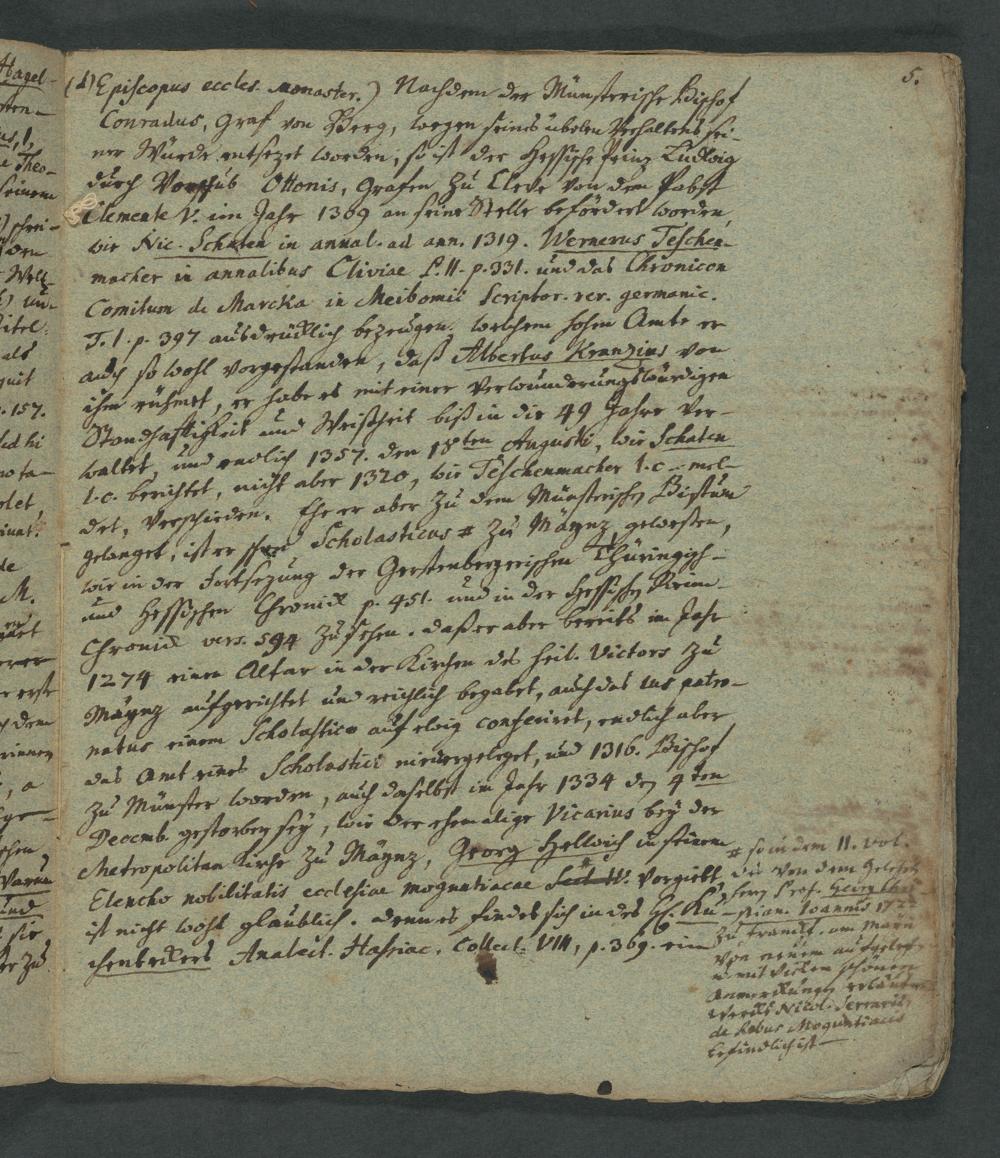 5.
(d) Episcopus eccles. monaster.) Nachdem der Münsterische Bischof
Conradus, Graf von Berg, wegen seines übelen Verhaltens sei-
ner Würde entsezet worden, so ist der Hessische Prinz Ludwig
durch Vorschub Ottonis, Grafen zu Cleve von dem Pabst
Clemente V. im Jahr 1309 an seine Stelle befördert worden,
wie Nic. Schaten in annal. ad ann. 1319. Wernerus Teschen-
macher in annalibus Cliviae P. II. p. 331. und das Chronicon
Comitum de Marcka in Meibomii Scriptor. rer. germanic.
T. I. p. 397 ausdrücklich bezeugen, welchem hohen Amte er
auch so wohl vorgestanden, daß Albertus Kranzius von
ihm rühmet, er habe es mit einer verwunderungswürdigen
Standhaftigkeit und Weißheit biß in die 49 Jahre ver-
waltet, und endlich 1357. den 18ten Augusti, wie Schaten
l. c. berichtet, nicht aber 1320, wie Teschenmacher l. c. mel-
det, verschieden. Ehe er aber zu dem Münsterischen Bistum
gelanget, ist er Scholasticus # zu Mäynz gewesen,
wie in der Fortsezung der Gerstenbergerischen Thüringisch-
und Hessischen Chronick p. 451. und in der Hessischen Reim-
Chronick vers. 594 zu sehen. daß er aber bereits im Jahr
1274 einen Altar in der Kirchen des heil. Victors zu
Mäynz aufgerichtet und reichlich begabet, auch das ius patro-
natus einem Scholastico auf ewig conferiret, endlich aber
das Amt eines Scholastici niedergeleget, und 1316. Bischof
zu Münster worden, auch daselbst im Jahr 1334 den 4ten
Decemb. gestorben sey, wie der ehemalige Vicarius bey der
Metropolitan Kirche zu Mäynz, Georg Hellwich in seinem
Elencho nobilitatis ecclesiae moguntiacae # vorgiebt,
ist nicht wohl glaublich. denn es findet sich in des H. Ku-
chenbekers Analect. Hassiac. Collect. VIII, p. 369. ein
# so in dem II. Vol.
des von dem Gelehrten
Herrn Prof. Georg Chri-
stian. Ioannis 172
zu Franckf. am Mäyn
von neuem aufgelegt
u. mit vielen schönen
Anmerkungen erläuterten
Wercks Nicol. Serrarii
de Rebus Moguntiacis
befindlich ist